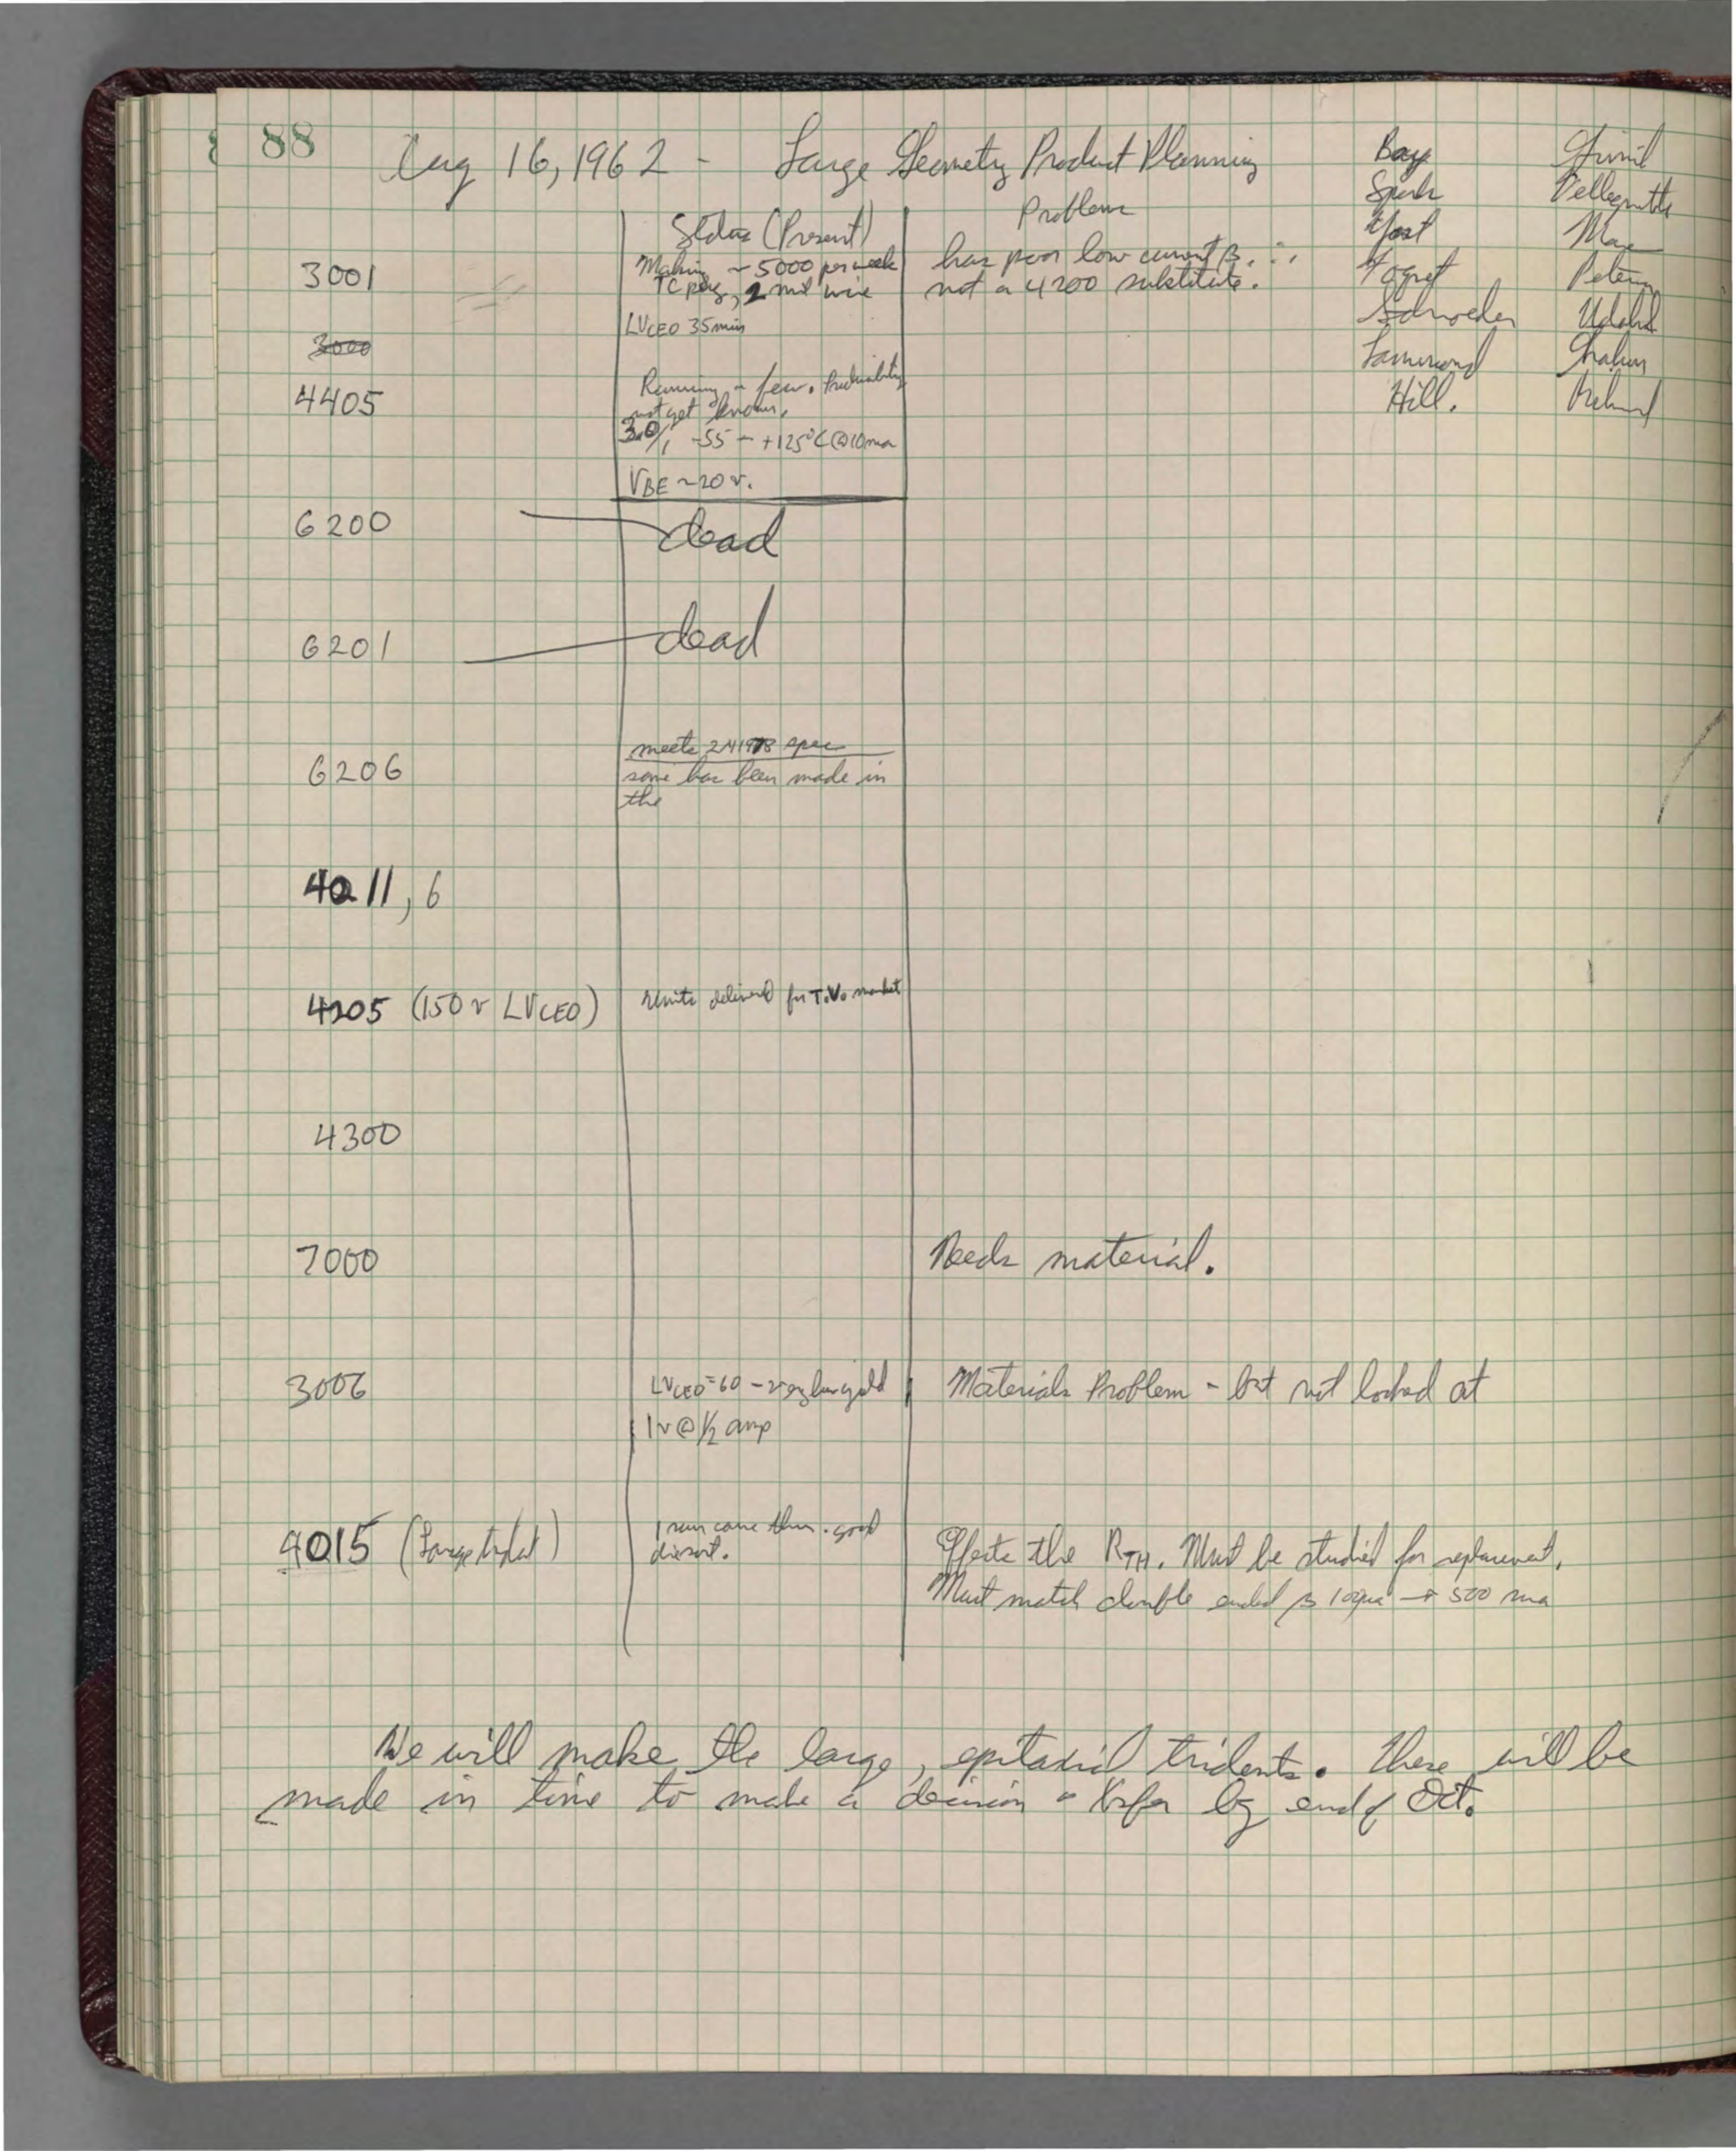 88
Aug 16, 1962 - Large Geometry Product Planning
Bay
Spark
Yost
Schroeder
Hill.
Grinich
Pellegrette
May
Peterson
Graham
Status (Present)
Problem
3001
Making ~ 5000 per week
TC pkg, 2 mil wire
LVCEO 35 min
has poor low current β. ∴
not a 4200 substitute.
3000
4405
Running a few. Producibility
not yet known.
30/1 -55 - +125°C @ 10 ma
VBE ~ 20 v.
6200
dead
6201
dead
6206
meets 2N1978 spec
some has been made in
the
4011, 6
4205 (150 v LVCEO)
units delivered for T.V. market
4300
7000
Needs material.
3006
LVCEO = 60 - very low yield
1v @ 1/2 amp
Materials Problem - but not looked at
4015 (Large trident)
1 run came thru. good
Effects the RTH. Must be studied for replacement.
Must match double ended β → 500 ma
We will make the large, epitaxial tridents. These will be
made in time to make a decision Xsfer by end of Oct.